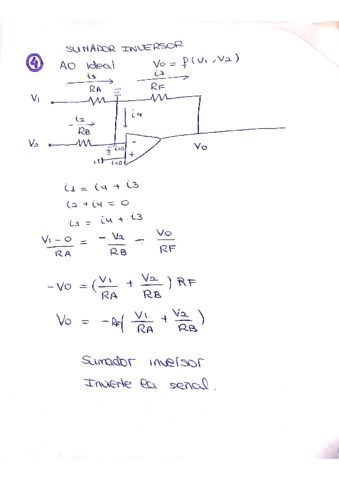 SUMADOR INVERSOR
4 AO Ideal Vo = f(V1, V2)
i1 i3
RA RF
V1
i2 i4
V2 RB i=0 -
i=0 +
Vo
i1 = i4 + i3
i2 + i4 = 0
i1 = i4 + i3
V1 - 0 / RA = - V2 / RB - Vo / RF
-Vo = (V1 / RA + V2 / RB) RF
Vo = -RF (V1 / RA + V2 / RB)
Sumador inversor
Invierte la señal.